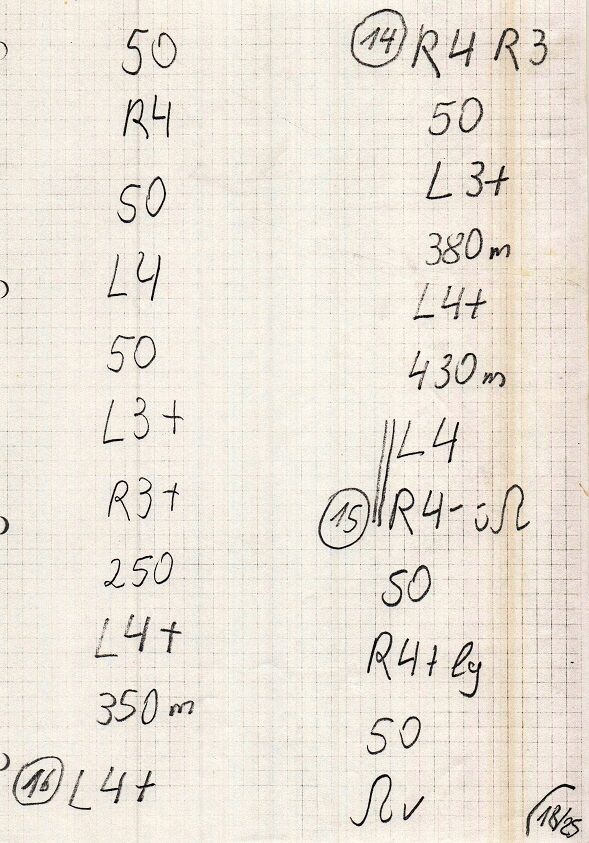 50
R4
50
L4
50
L3+
R3+
250
L4+
350m
16 L4+
14 R4 R3
50
L3+
380m
L4+
430m
L4
15 R4- ü Ω
50
R4+ lg
50
Ω v
18/25